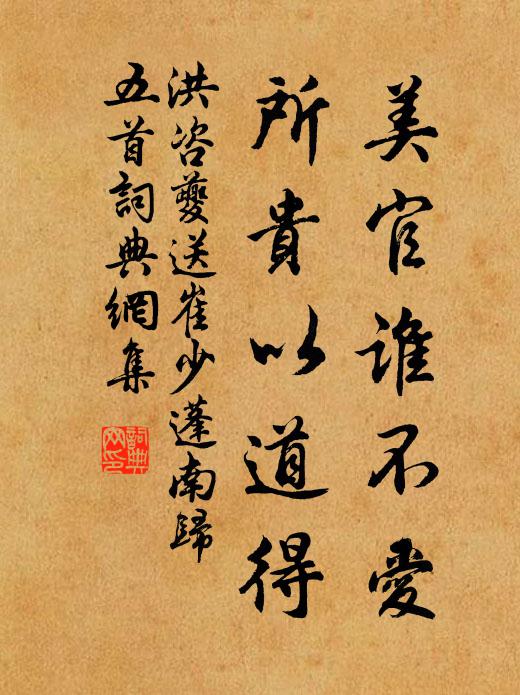 美官誰不愛
所貴以道得
洪咨夔送崔少蓬南歸
五首詞典網集
詞典
网印